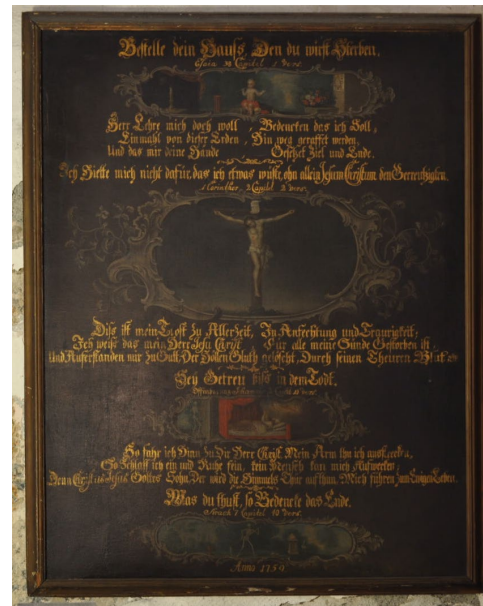 Bestelle dein Hauſs, Den du wirst Sterben.
Esaia 38 Capitel 1 Vers.
Herr Lehre mich doch woll, Bedencken das ich Soll,
Einmahl von dieser Erden, Hin weg geraffet werden.
Und das mir deine Hände Gesetzet Ziel und Ende.
Ich Hielte mich nicht dafür, das ich etwas wüste, ohn allein Jesum Christum den Gecreutzigten.
1 Corinther 2 Capitel 2 Vers.
Diſs ist mein Trost Zu Aller Zeit, In Anfechtung und Traurigkeit;
Ich weiſs das mein Herr Jesu Christ, Für alle meine Sünde Gestorben ist,
Und Auferstanden mir Zu Gutt, Der Höllen Gluth gelöscht, Durch seinen Theuren
Sey Getreu biſs in dem Todt.
So fahr ich Hinn Zu Dir Herr Christ, Mein Arm thu ich
So Schlaff ich ein und Ruhe fein, kein Mensch kan mich Aufwecken,
Denn Christus Jesus Gottes Sohn, Der wird die Himmels Thür aufthun, Mich führen zum Ewigen Leben.
Was du thust, so Bedencke das Ende.
7 Capitel Vers.
Anno 1759